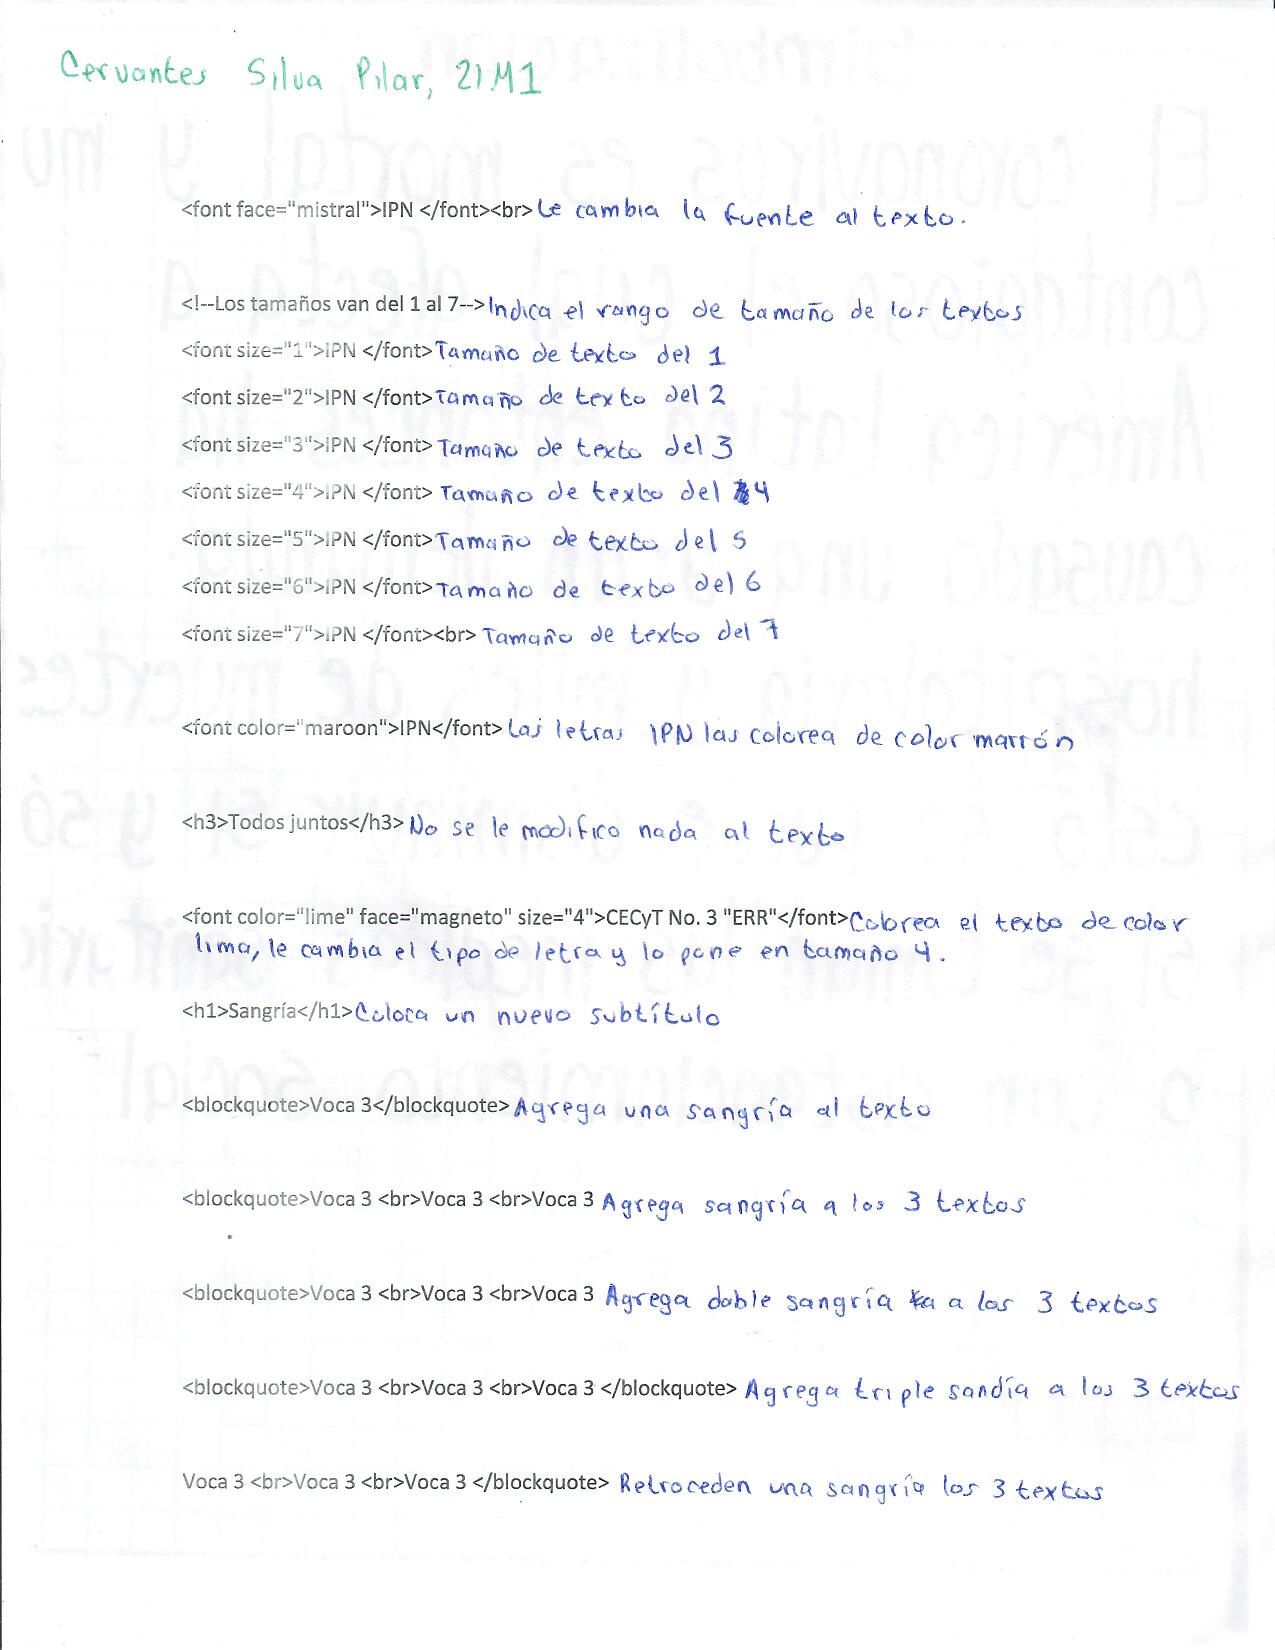 Cervantes Silva Pilar, 2IM1
<font face="mistral">IPN </font><br> Le cambia la fuente al texto.
<!--Los tamaños van del 1 al 7--> Indica el rango de tamaño de los textos
<font size="1">IPN </font> Tamaño de texto del 1
<font size="2">IPN </font> Tamaño de texto del 2
<font size="3">IPN </font> Tamaño de texto del 3
<font size="4">IPN </font> Tamaño de texto del 4
<font size="5">IPN </font> Tamaño de texto del 5
<font size="6">IPN </font> Tamaño de texto del 6
<font size="7">IPN </font><br> Tamaño de texto del 7
<font color="maroon">IPN</font> Las letras IPN las colorea de color marrón
<h3>Todos juntos</h3> No se le modifico nada al texto
<font color="lime" face="magneto" size="4">CECyT No. 3 "ERR"</font> Colorea el texto de color
lima, le cambia el tipo de letra y lo pone en tamaño 4.
<h1>Sangría</h1> Coloca un nuevo subtítulo
<blockquote>Voca 3</blockquote> Agrega una sangría al texto
<blockquote>Voca 3 <br>Voca 3 <br>Voca 3 Agrega sangría a los 3 textos
<blockquote>Voca 3 <br>Voca 3 <br>Voca 3 Agrega doble sangría a los 3 textos
<blockquote>Voca 3 <br>Voca 3 <br>Voca 3 </blockquote> Agrega triple sandía a los 3 textos
Voca 3 <br>Voca 3 <br>Voca 3 </blockquote> Retroceden una sangría los 3 textos